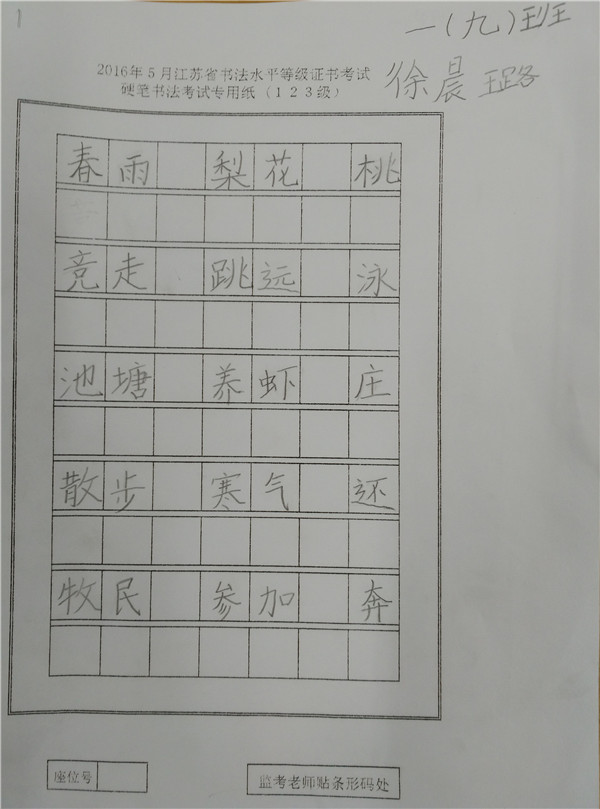 1
一(九)班
2016年5月江苏省书法水平等级证书考试
硬笔书法考试专用纸(123级)
徐晨璐
春雨 梨花 桃
竞走 跳远 泳
池塘 养虾 庄
散步 寒气 还
牧民 参加 奔
座位号
监考老师贴条形码处